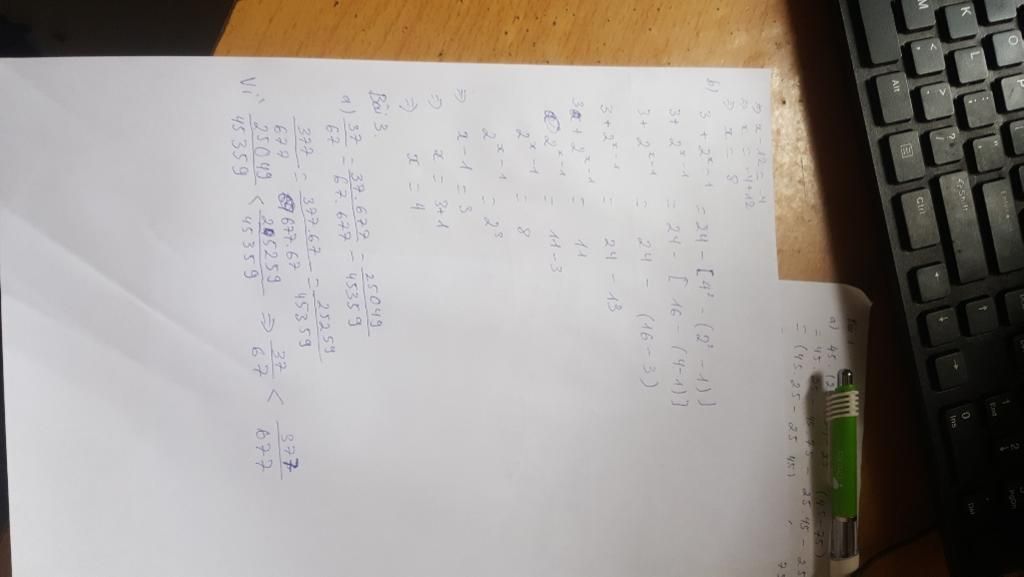 => x - 12 = -4
=> x = -4 + 12
=> x = 8
b) 3 + 2^{x-1} = 24 - [4² - (2² - 1)]
3 + 2^{x-1} = 24 - [16 - (4-1)]
3 + 2^{x-1} = 24 - (16 - 3)
3 + 2^{x-1} = 24 - 13
3 + 2^{x-1} = 11
2^{x-1} = 11 - 3
2^{x-1} = 8
2^{x-1} = 2³
=> x - 1 = 3
=> x = 3 + 1
=> x = 4
Bài 3
a) 37/67 = 37.677/67.677 = 25049/45359
377/677 = 377.67/677.67 = 25259/45359
Vì 25049/45359 < 25259/45359 => 37/67 < 377/677
Bài 1
= (45.25 - 25.45)
Alt
Ctrl
Shift
M
K
L
O
P
0
Ins
1
End
2
Del